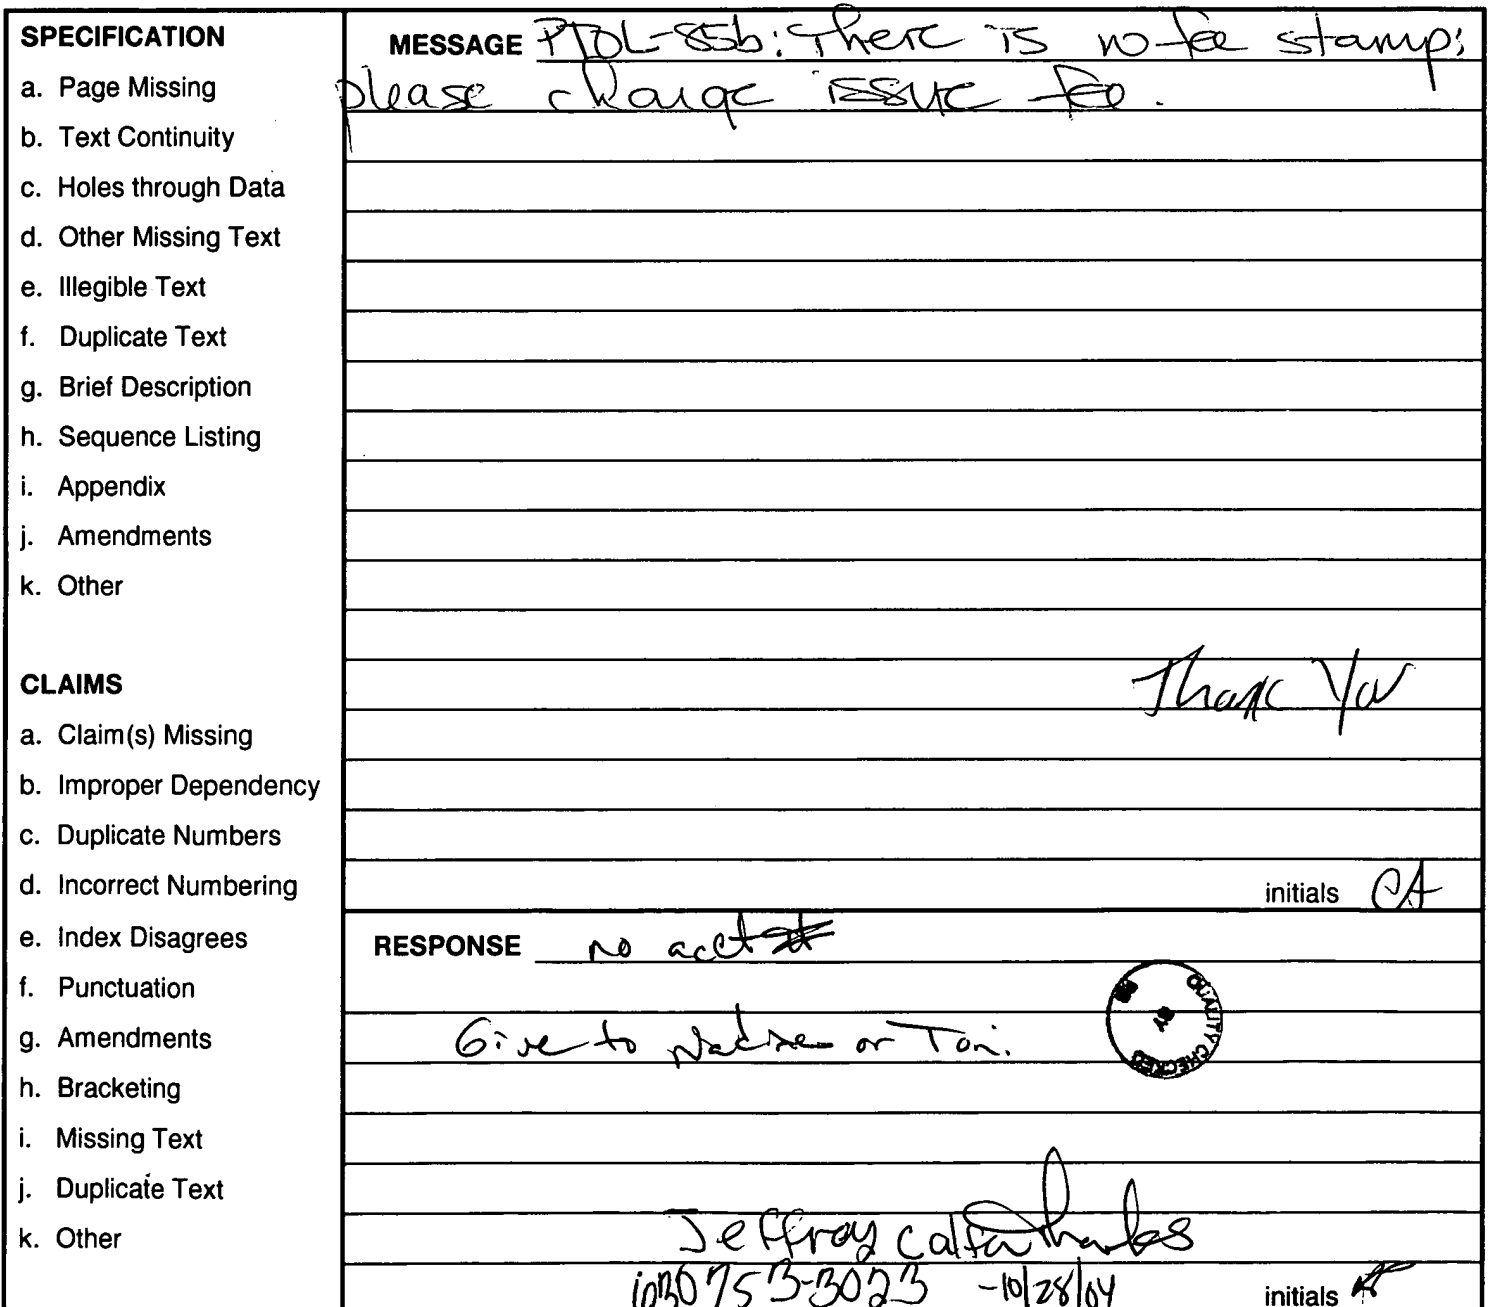 SPECIFICATION
a. Page Missing
b. Text Continuity
c. Holes through Data
d. Other Missing Text
e. Illegible Text
f. Duplicate Text
g. Brief Description
h. Sequence Listing
i. Appendix
j. Amendments
k. Other
CLAIMS
a. Claim(s) Missing
b. Improper Dependency
c. Duplicate Numbers
d. Incorrect Numbering
e. Index Disagrees
f. Punctuation
g. Amendments
h. Bracketing
i. Missing Text
j. Duplicate Text
k. Other
MESSAGE PTOL-85b: There is no fee stamp;
please charge issue fee.
Thank You
initials CA
RESPONSE no acct
QUALITY CHECKED
Give to Nadine or Toni.
Jeffrey Calfa thanks
753-3023 -10/28/04
initials